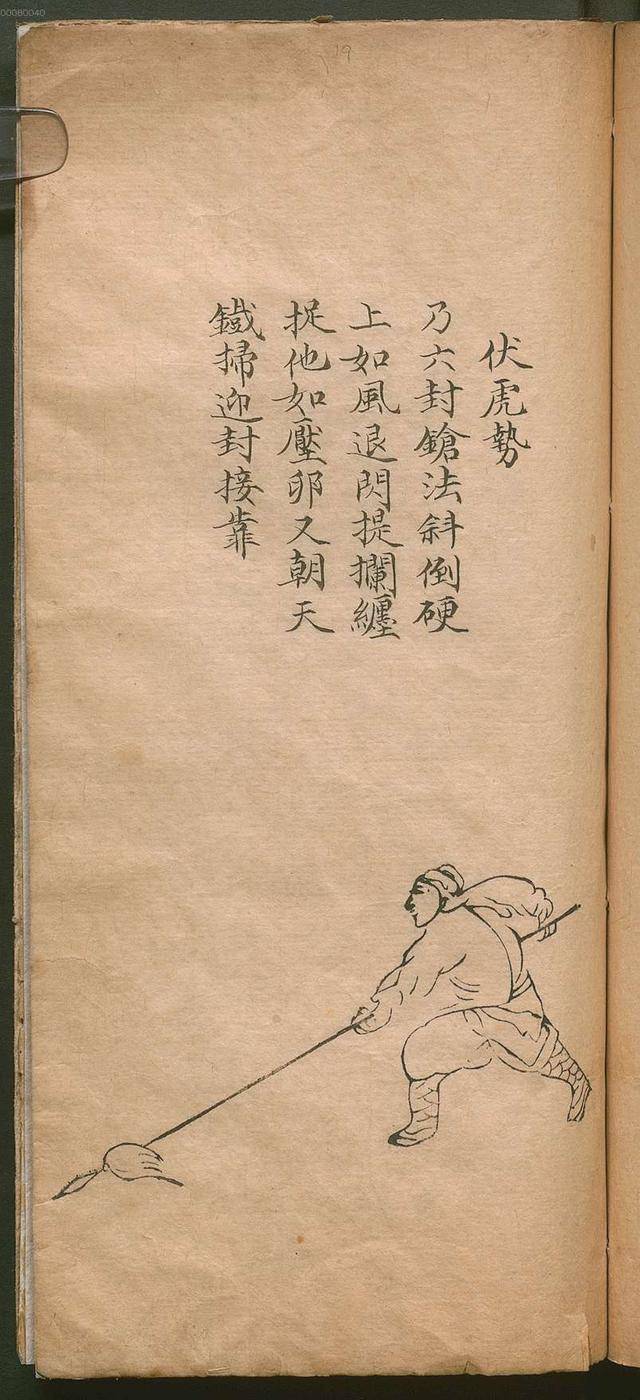 00080040
19
伏虎勢
乃六封鎗法斜倒硬
上如風退閃提攔纏
捉他如壓卵又朝天
鐵掃迎封接靠